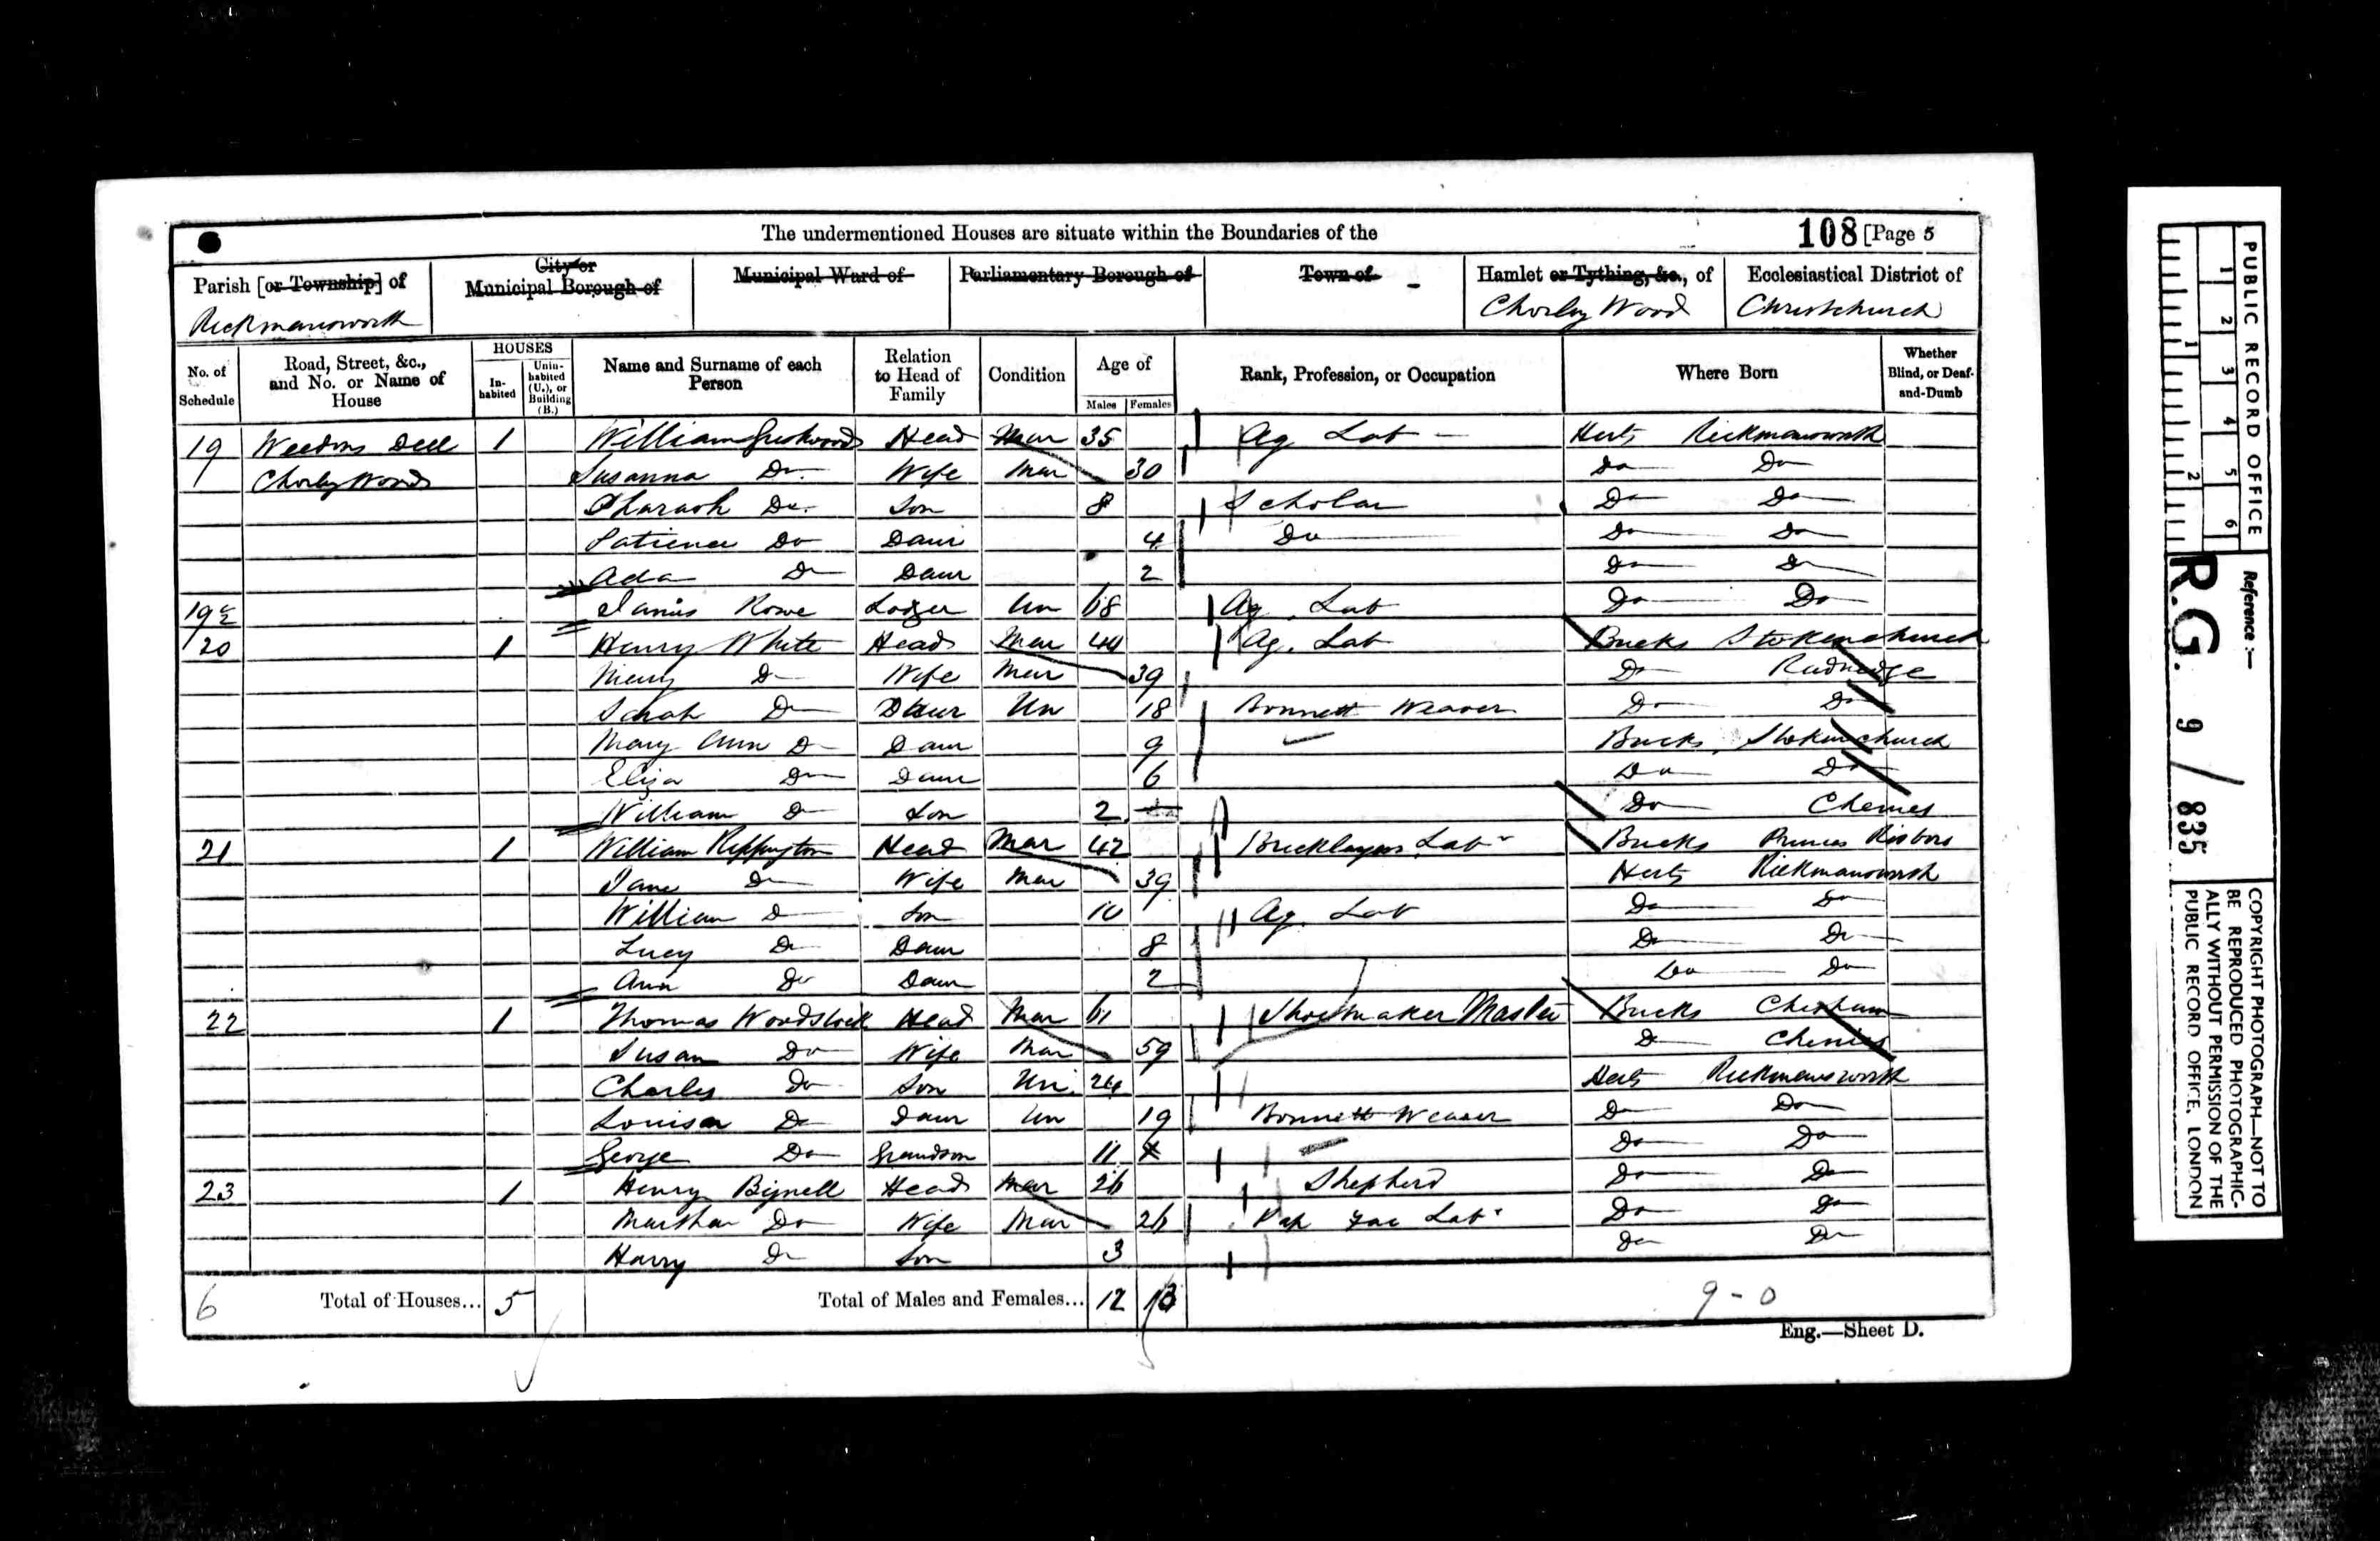 The undermentioned Houses are situate within the Boundaries of the 108 [Page 5
Parish [or Township] of Rickmansworth
City or Municipal Borough of
Municipal Ward of
Parliamentary Borough of
Town of -
Hamlet or Tything, &c., of Chorley Wood
Ecclesiastical District of Christchurch
No. of Schedule
Road, Street, &c., and No. or Name of House
HOUSES
In-habited
Unin-habited (U.), or Building (B.)
Name and Surname of each Person
Relation to Head of Family
Condition
Age of
Males Females
Rank, Profession, or Occupation
Where Born
Whether Blind, or Deaf-and-Dumb
19 Weedons Dell 1 William Head Mar 35 Ag Lab Herts Rickmansworth
Chorley Wood Susanna Do Wife Mar 30 Do Do
Pharaoh Do Son 8 Scholar Do Do
Patience Do Daur 4 Do Do Do
Ada Do Daur 2 Do Do
19 James Rowe Lodger Un 18 Ag. Lab Do Do
20 1 Henry White Head Mar 44 Ag. Lab Bucks Stokenchurch
Mary Do Wife Mar 39 Do Radnedge
Sarah Do Daur Un 18 Bonnett Weaver Do Do
Mary Ann Do Daur 9 Bucks Stokenchurch
Eliza Do Daur 6 Do Do
William Do Son 2 Do Chenies
21 1 William Rippington Head Mar 42 Bricklayers Labr Bucks Princes Risboro
Jane Do Wife Mar 39 Herts Rickmansworth
William Do Son 10 Ag. Lab Do Do
Lucy Do Daur 8 Do Do
Ann Do Daur 2 Do Do
22 1 Thomas Woodstock Head Mar 61 Shoemaker Master Bucks Chesham
Susan Do Wife Mar 59 Do Chenies
Charles Do Son Un 24 Herts Rickmansworth
Louisa Do Daur Un 19 Bonnett Weaver Do Do
George Do Grandson 11 Do Do
23 1 Henry Bignell Head Mar 26 Shepherd Do Do
Martha Do Wife Mar 26 Pap Fac Labr Do Do
Harry Do Son 3 Do Do
6 Total of Houses... 5 Total of Males and Females... 12 13 9-0
Eng.—Sheet D.
PUBLIC RECORD OFFICE
1 2 3 4 5 6
1 2
Reference :—
R.G. 9 / 835
COPYRIGHT PHOTOGRAPH—NOT TO
BE REPRODUCED PHOTOGRAPHIC-
ALLY WITHOUT PERMISSION OF THE
PUBLIC RECORD OFFICE, LONDON